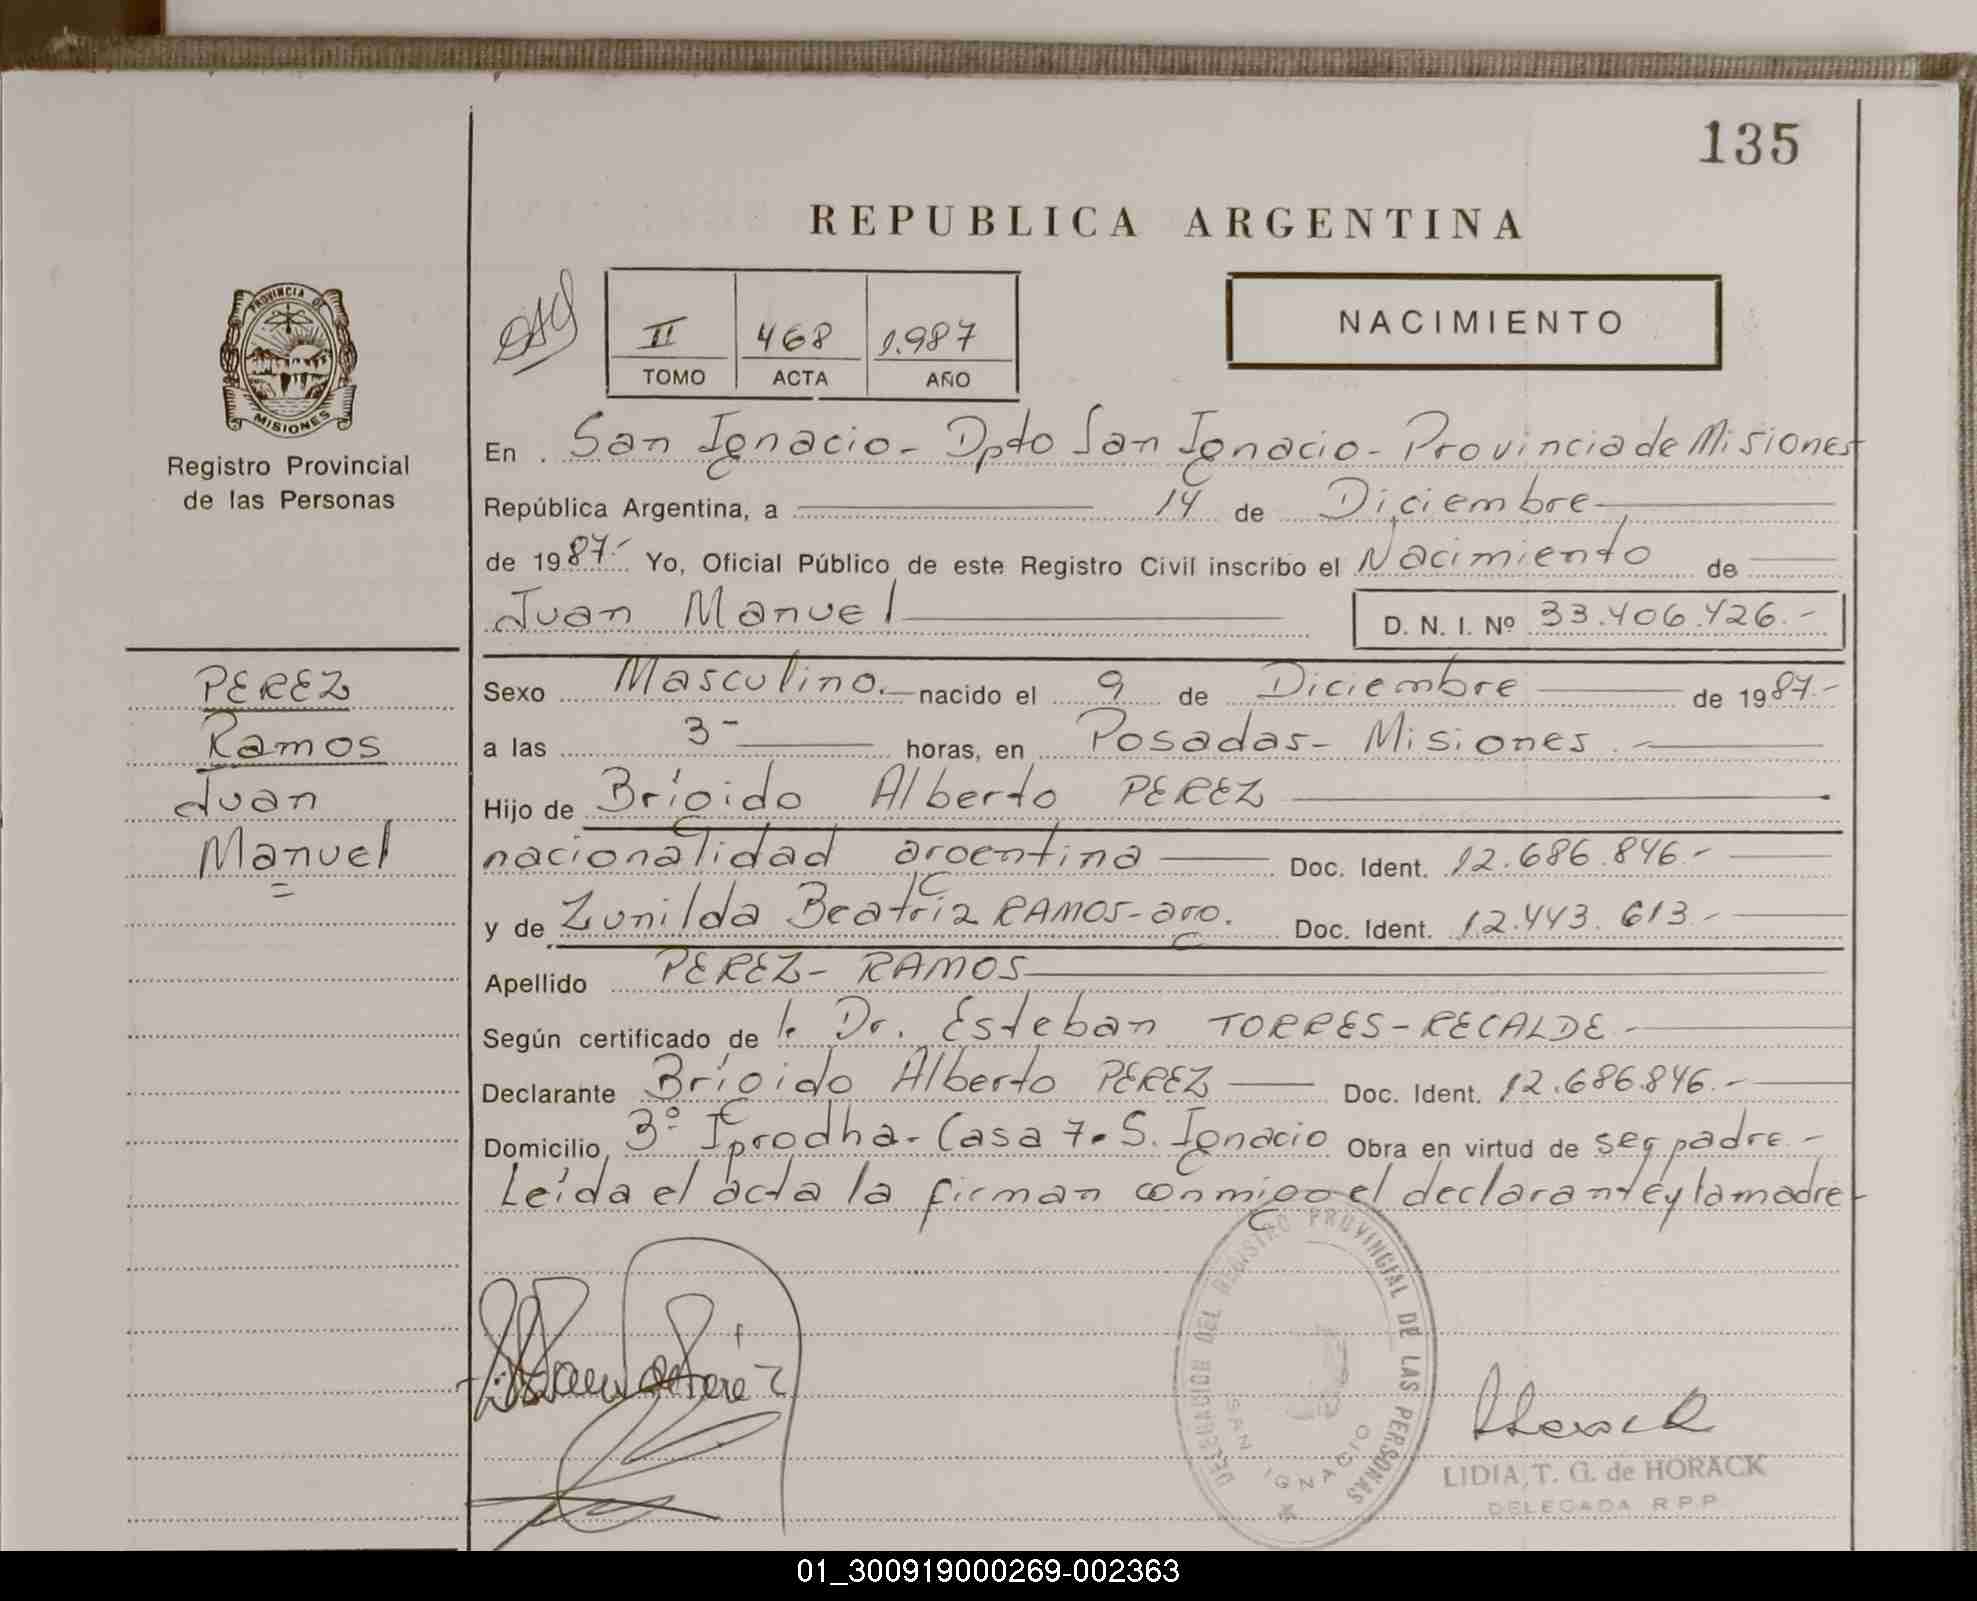 135
REPUBLICA ARGENTINA
PROVINCIA DE
MISIONES
Registro Provincial
de las Personas
II 468 1.987
TOMO ACTA AÑO
NACIMIENTO
En San Ignacio - Dpto San Ignacio - Provincia de Misiones
República Argentina, a 14 de Diciembre
de 1987.- Yo, Oficial Público de este Registro Civil inscribo el Nacimiento de
Juan Manuel D. N. I. Nº 33.406.426.-
PEREZ
Ramos
Juan
Manuel
Sexo Masculino. nacido el 9 de Diciembre de 1987.-
a las 3- horas, en Posadas - Misiones.-
Hijo de Brígido Alberto PEREZ
nacionalidad argentina Doc. Ident. 12.686.846.-
y de Zunilda Beatríz RAMOS - arg. Doc. Ident. 12.443.613.-
Apellido PEREZ - RAMOS
Según certificado de l. Dr. Esteban TORRES - RECALDE.-
Declarante Brígido Alberto PEREZ Doc. Ident. 12.686.846.-
Domicilio 3º Iprodha - Casa 7. S. Ignacio Obra en virtud de ser padre.-
Leída el acta la firman conmigo el declarante y la madre-
DELEGACION DEL REGISTRO PROVINCIAL DE LAS PERSONAS
SAN IGNACIO
Horack
LIDIA, T. G. de HORACK
DELEGADA R.P.P.
01_300919000269-002363